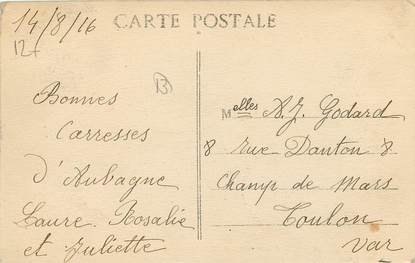 14/8/16
CARTE POSTALE
12f
13
Bonnes
Carresses
d'Aubagne
Laure. Rosalie
et Juliette
Melles A.J. Godard
8 rue Danton 8
Champ de Mars
Toulon
Var